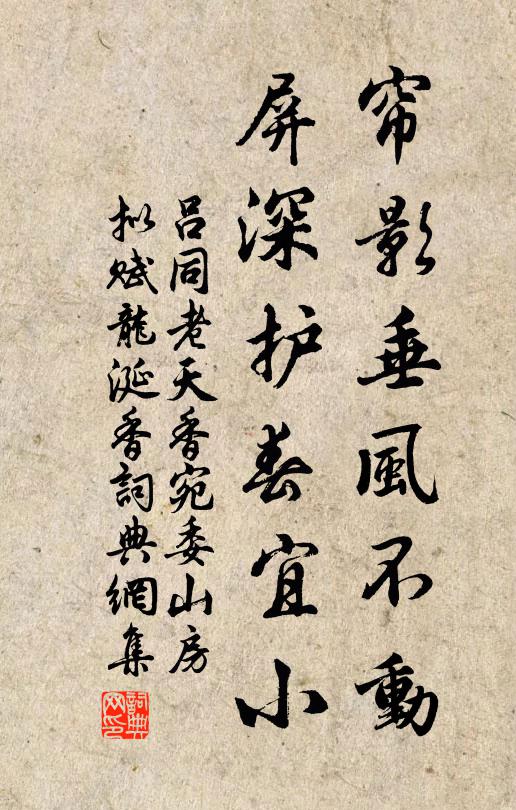 帘影垂風不動
屏深护春宜小
吕同老天香宛委山房
拟赋龍涎香詞典網集
詞典
网印